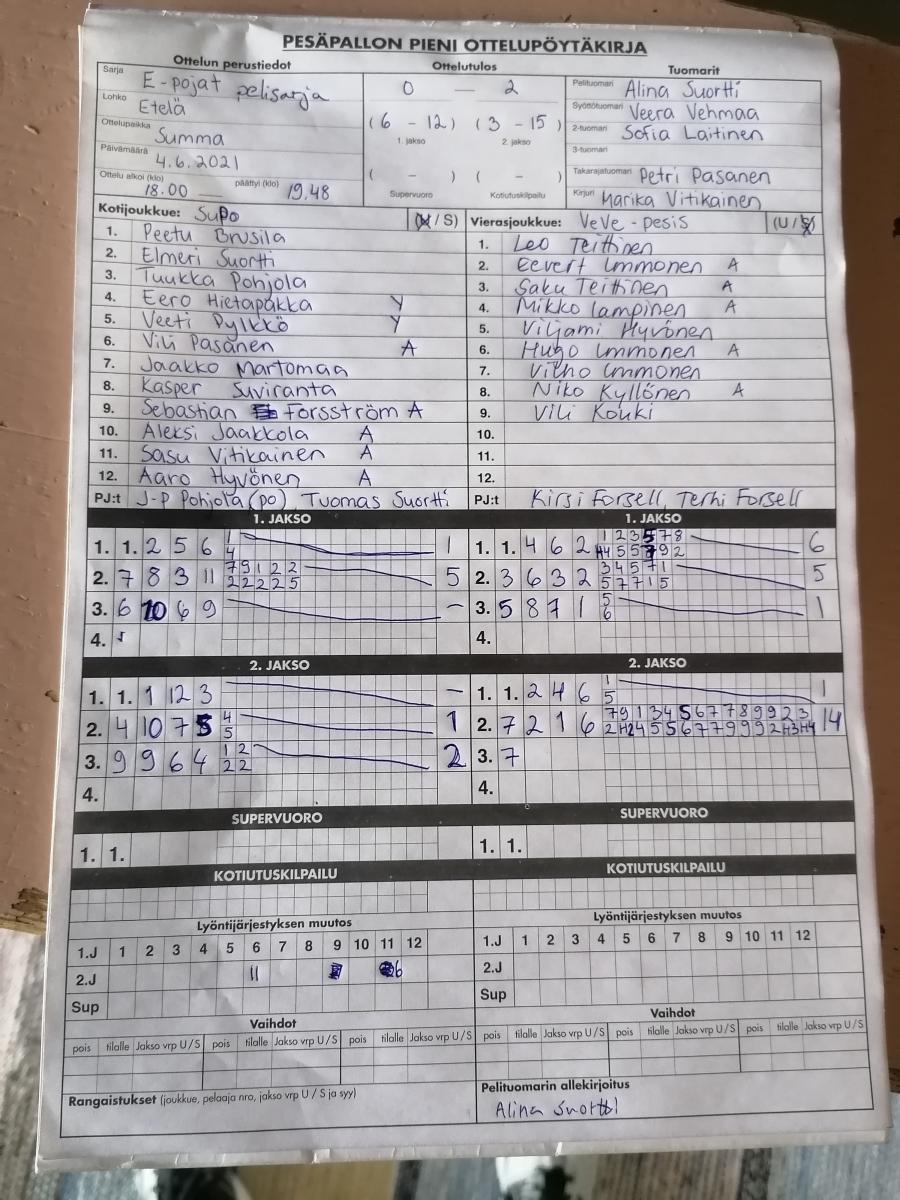 PESÄPALLON PIENI OTTELUPÖYTÄKIRJA
Ottelun perustiedot Ottelutulos Tuomarit
Sarja E-pojat pelisarja
Lohko Etelä
Ottelupaikka Summa
Päivämäärä 4.6.2021
Ottelu alkoi (klo) 18.00 päättyi (klo) 19.48
0 — 2
(6 - 12) (3 - 15)
1. jakso 2. jakso
( - ) ( - )
Supervuoro Kotiutuskilpailu
Pelituomari Alina Suortti
Syöttötuomari Veera Vehmaa
2-tuomari Sofia Laitinen
3-tuomari
Takarajatuomari Petri Pasanen
Kirjuri Marika Vitikainen
Kotijoukkue: SuPo (U / S)
1. Peetu Brusila
2. Elmeri Suortti
3. Tuukka Pohjola
4. Eero Hietapakka Y
5. Veeti Pylkkö Y
6. Vili Pasanen A
7. Jaakko Martomaa
8. Kasper Suviranta
9. Sebastian Forsström A
10. Aleksi Jaakkola A
11. Sasu Vitikainen A
12. Aaro Hyvönen A
PJ:t J-P Pohjola (po) Tuomas Suortti
Vierasjoukkue: VeVe - pesis (U / S)
1. Leo Teittinen
2. Eevert Immonen A
3. Saku Teittinen A
4. Mikko Lampinen A
5. Viljami Hyvönen
6. Hugo Immonen A
7. Vilho Immonen
8. Niko Kyllönen A
9. Vili Kouki
10.
11.
12.
PJ:t Kirsi Forsell, Terhi Forsell
1. JAKSO
1. 1. 2 5 6 1 1
4
2. 7 8 3 11 7 9 1 2 2 5
2 2 2 2 5
3. 6 10 6 9 –
4.
1. JAKSO
1. 1. 4 6 2 1 2 3 5 7 8 6
H4 5 5 9 2
2. 3 6 3 2 3 4 5 7 1 5
5 7 7 1 5
3. 5 8 7 1 5 1
6
4.
2. JAKSO
1. 1. 1 12 3 –
2. 4 10 7 5 4 1
5
3. 9 9 6 4 1 2 2
2 2
4.
2. JAKSO
1. 1. 2 4 6 1 1
5
2. 7 2 1 6 7 9 1 3 4 5 6 7 7 8 9 9 2 3 14
2 H2 4 5 5 6 7 7 9 9 9 2 H3 H4
3. 7
4.
SUPERVUORO
1. 1.
SUPERVUORO
1. 1.
KOTIUTUSKILPAILU
KOTIUTUSKILPAILU
Lyöntijärjestyksen muutos
1.J 1 2 3 4 5 6 7 8 9 10 11 12
2.J 11 6
Sup
Lyöntijärjestyksen muutos
1.J 1 2 3 4 5 6 7 8 9 10 11 12
2.J
Sup
Vaihdot
pois tilalle Jakso vrp U / S pois tilalle Jakso vrp U / S pois tilalle Jakso vrp U / S
Vaihdot
pois tilalle Jakso vrp U / S pois tilalle Jakso vrp U / S pois tilalle Jakso vrp U / S
Rangaistukset (joukkue, pelaaja nro, jakso vrp U / S ja syy)
Pelituomarin allekirjoitus
Alina Suortti